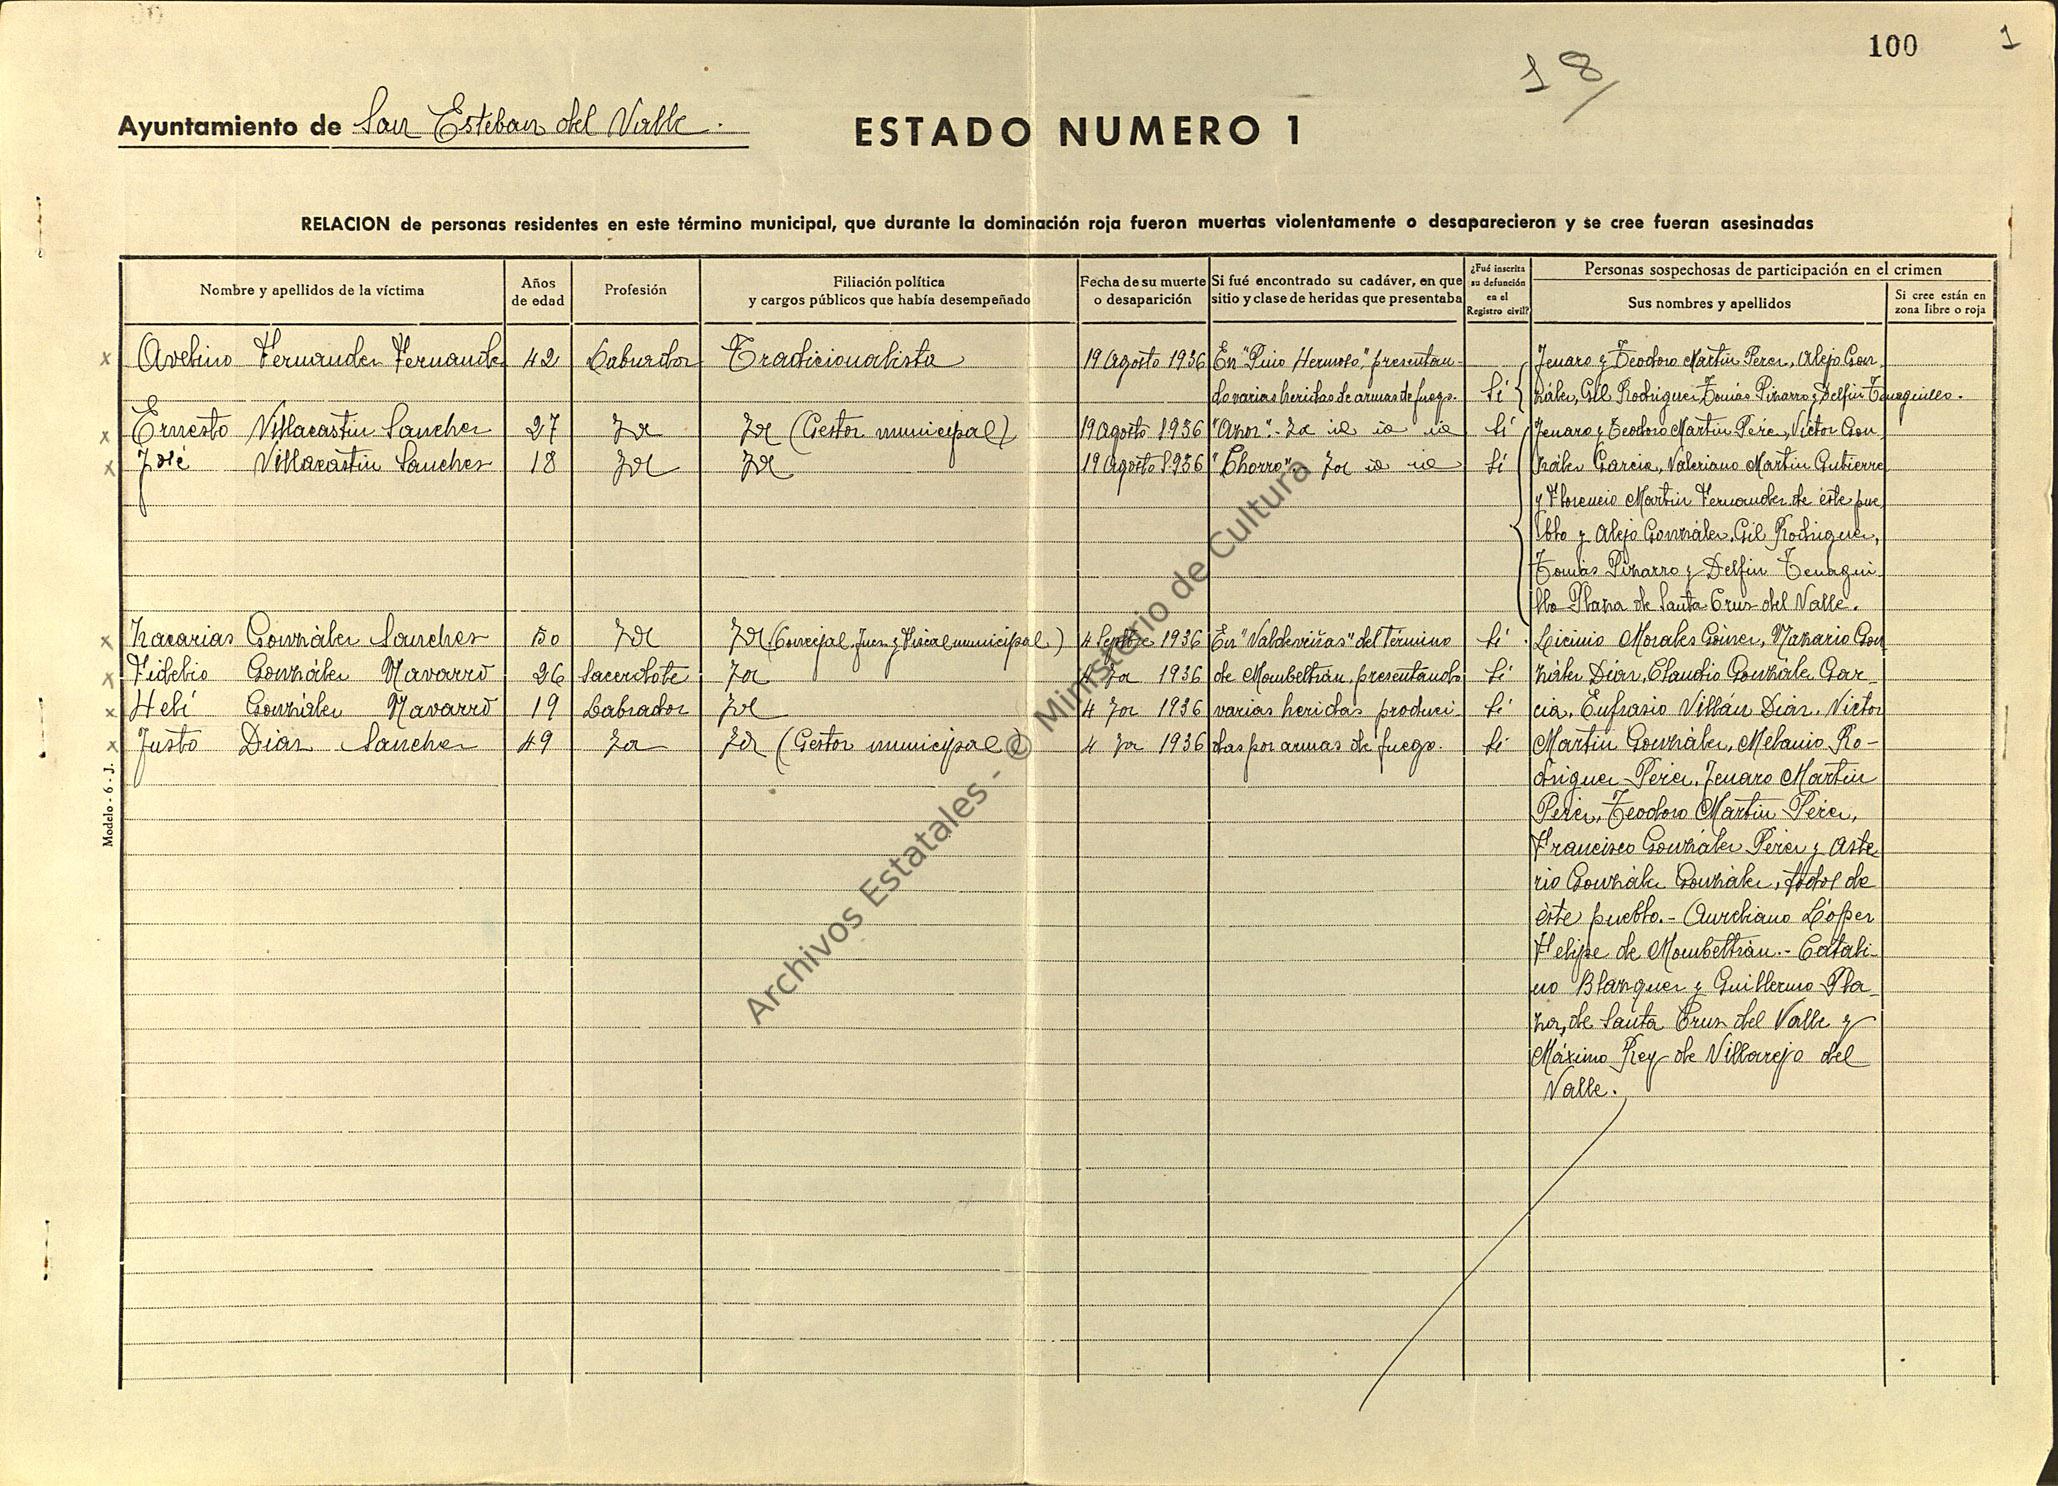 100
1
18/
Ayuntamiento de San Esteban del Valle.
ESTADO NUMERO 1
RELACION de personas residentes en este término municipal, que durante la dominación roja fueron muertas violentamente o desaparecieron y se cree fueran asesinadas
Nombre y apellidos de la víctima
Años de edad
Profesión
Filiación política y cargos públicos que había desempeñado
Fecha de su muerte o desaparición
Si fué encontrado su cadáver, en que sitio y clase de heridas que presentaba
¿Fué inscrita su defunción en el Registro civil?
Personas sospechosas de participación en el crimen
Sus nombres y apellidos
Si cree están en zona libre o roja
x Avelino Fernandez Fernande 42 Labrador Tradicionalista 19 Agosto 1936 En "Puio Hermoso", presentan- Jenaro y Teodoro Martin Perez, Alejo Gon
do varias heridas de armas de fuego. Sí zález, Gil Rodriguez, Tomás Pizarro y Delfin Tenaguillo.
x Ernesto Villacastin Sanchez 27 Id Id (Gestor municipal) 19 Agosto 1936 Id id id id Sí Jenaro y Teodoro Martin Pere, Victor Gon
x José Villacastin Sanchez 18 Id Id 19 Agosto 1936 "Chorro", Id id id Sí zález Garcia, Valeriano Martin Gutierre
y Florencio Martin Fernandez de éste pue
blo y Alejo González, Gil Rodriguez,
Tomás Pizarro y Delfin Tenagui
llo Plaza de Santa Cruz del Valle.
x Zacarias González Sanchez 50 Id Id (Concejal, Juez y Fiscal municipal) 4 Sepbre 1936 En "Valdeviñas" del término Sí Licinio Morales Gómez, Gon
x González Navarro 26 Sacerdote Id Id 1936 de Mombeltrán, presentando Sí zález Diaz, Claudio Gonzále Gar-
x Helí González Navarro 19 Labrador Id 4 Id 1936 varias heridas produci- Sí cia, Eufrasio Villán Diaz, Victor
x Justo Diaz Sanchez 49 Id Id (Gestor municipal) 4 Id 1936 das por armas de fuego. Sí Martin González, Melanio Ro-
driguez Pérez, Jenaro Martin
Pérez, Teodoro Martin Pérez,
Francisco González Pérez y Aste
rio Gonzále Gonzále, todos de
éste pueblo.- Aureliano López
Felipe de Mombeltrán.- Catali-
no Blazquez y Guillermo Pla-
za, de Santa Cruz del Valle y
Máximo Rey de Villarejo del
Valle.
Modelo - 6 - J.
Archivos Estatales - © Ministerio de Cultura